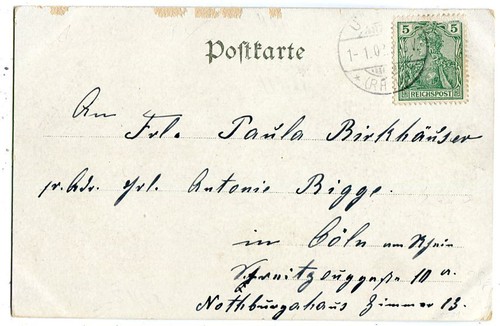 Postkarte
5 5
REICHSPOST
1-1.02
An
Frl. Paula Birkhäuser
pr. Adr. Frl. Antonie Bigge.
in Cöln am Rhein
10 a.
Nothburgahaus Zimmer 13.